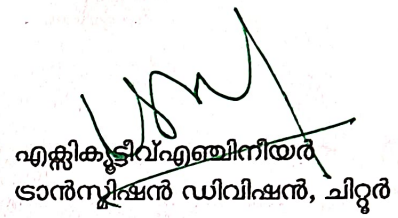 എക്സിക്യൂട്ടീവ്എഞ്ചിനീയർ
ട്രാൻസ്മിഷൻ ഡിവിഷൻ, ചിറ്റൂർ